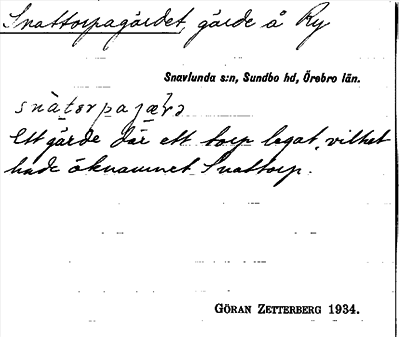 Snattorpagärdet, gärde å Ry
Snavlunda s:n, Sundbo hd, Örebro län.
Ett gärde där ett torp legat, vilket
hade öknamnet Snattorp.
GÖRAN ZETTERBERG 1934.